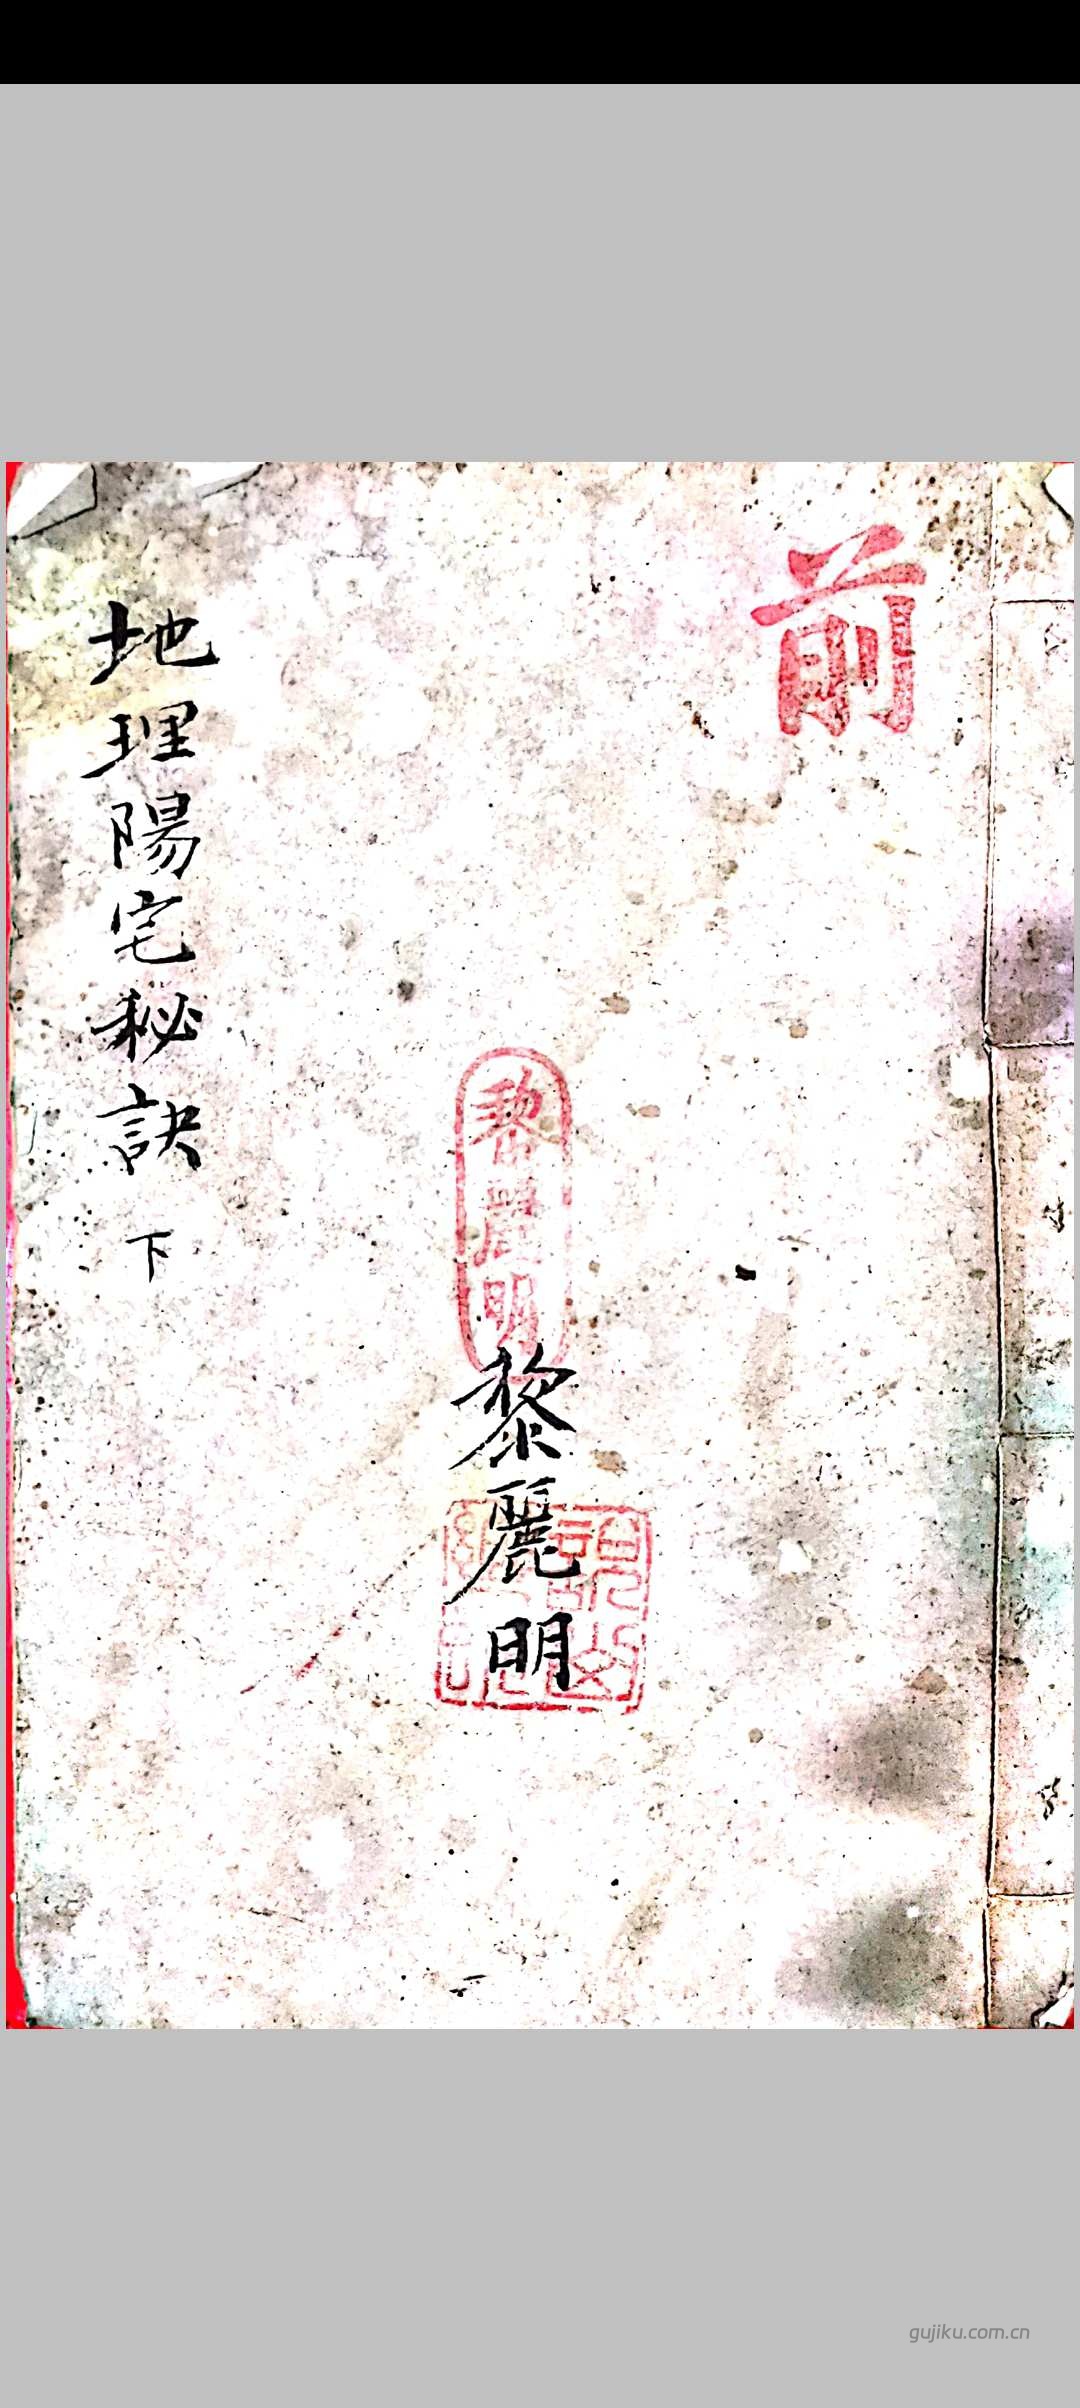 前
黎麗明
黎麗明
地理陽宅秘訣 下
gujiku.com.cn